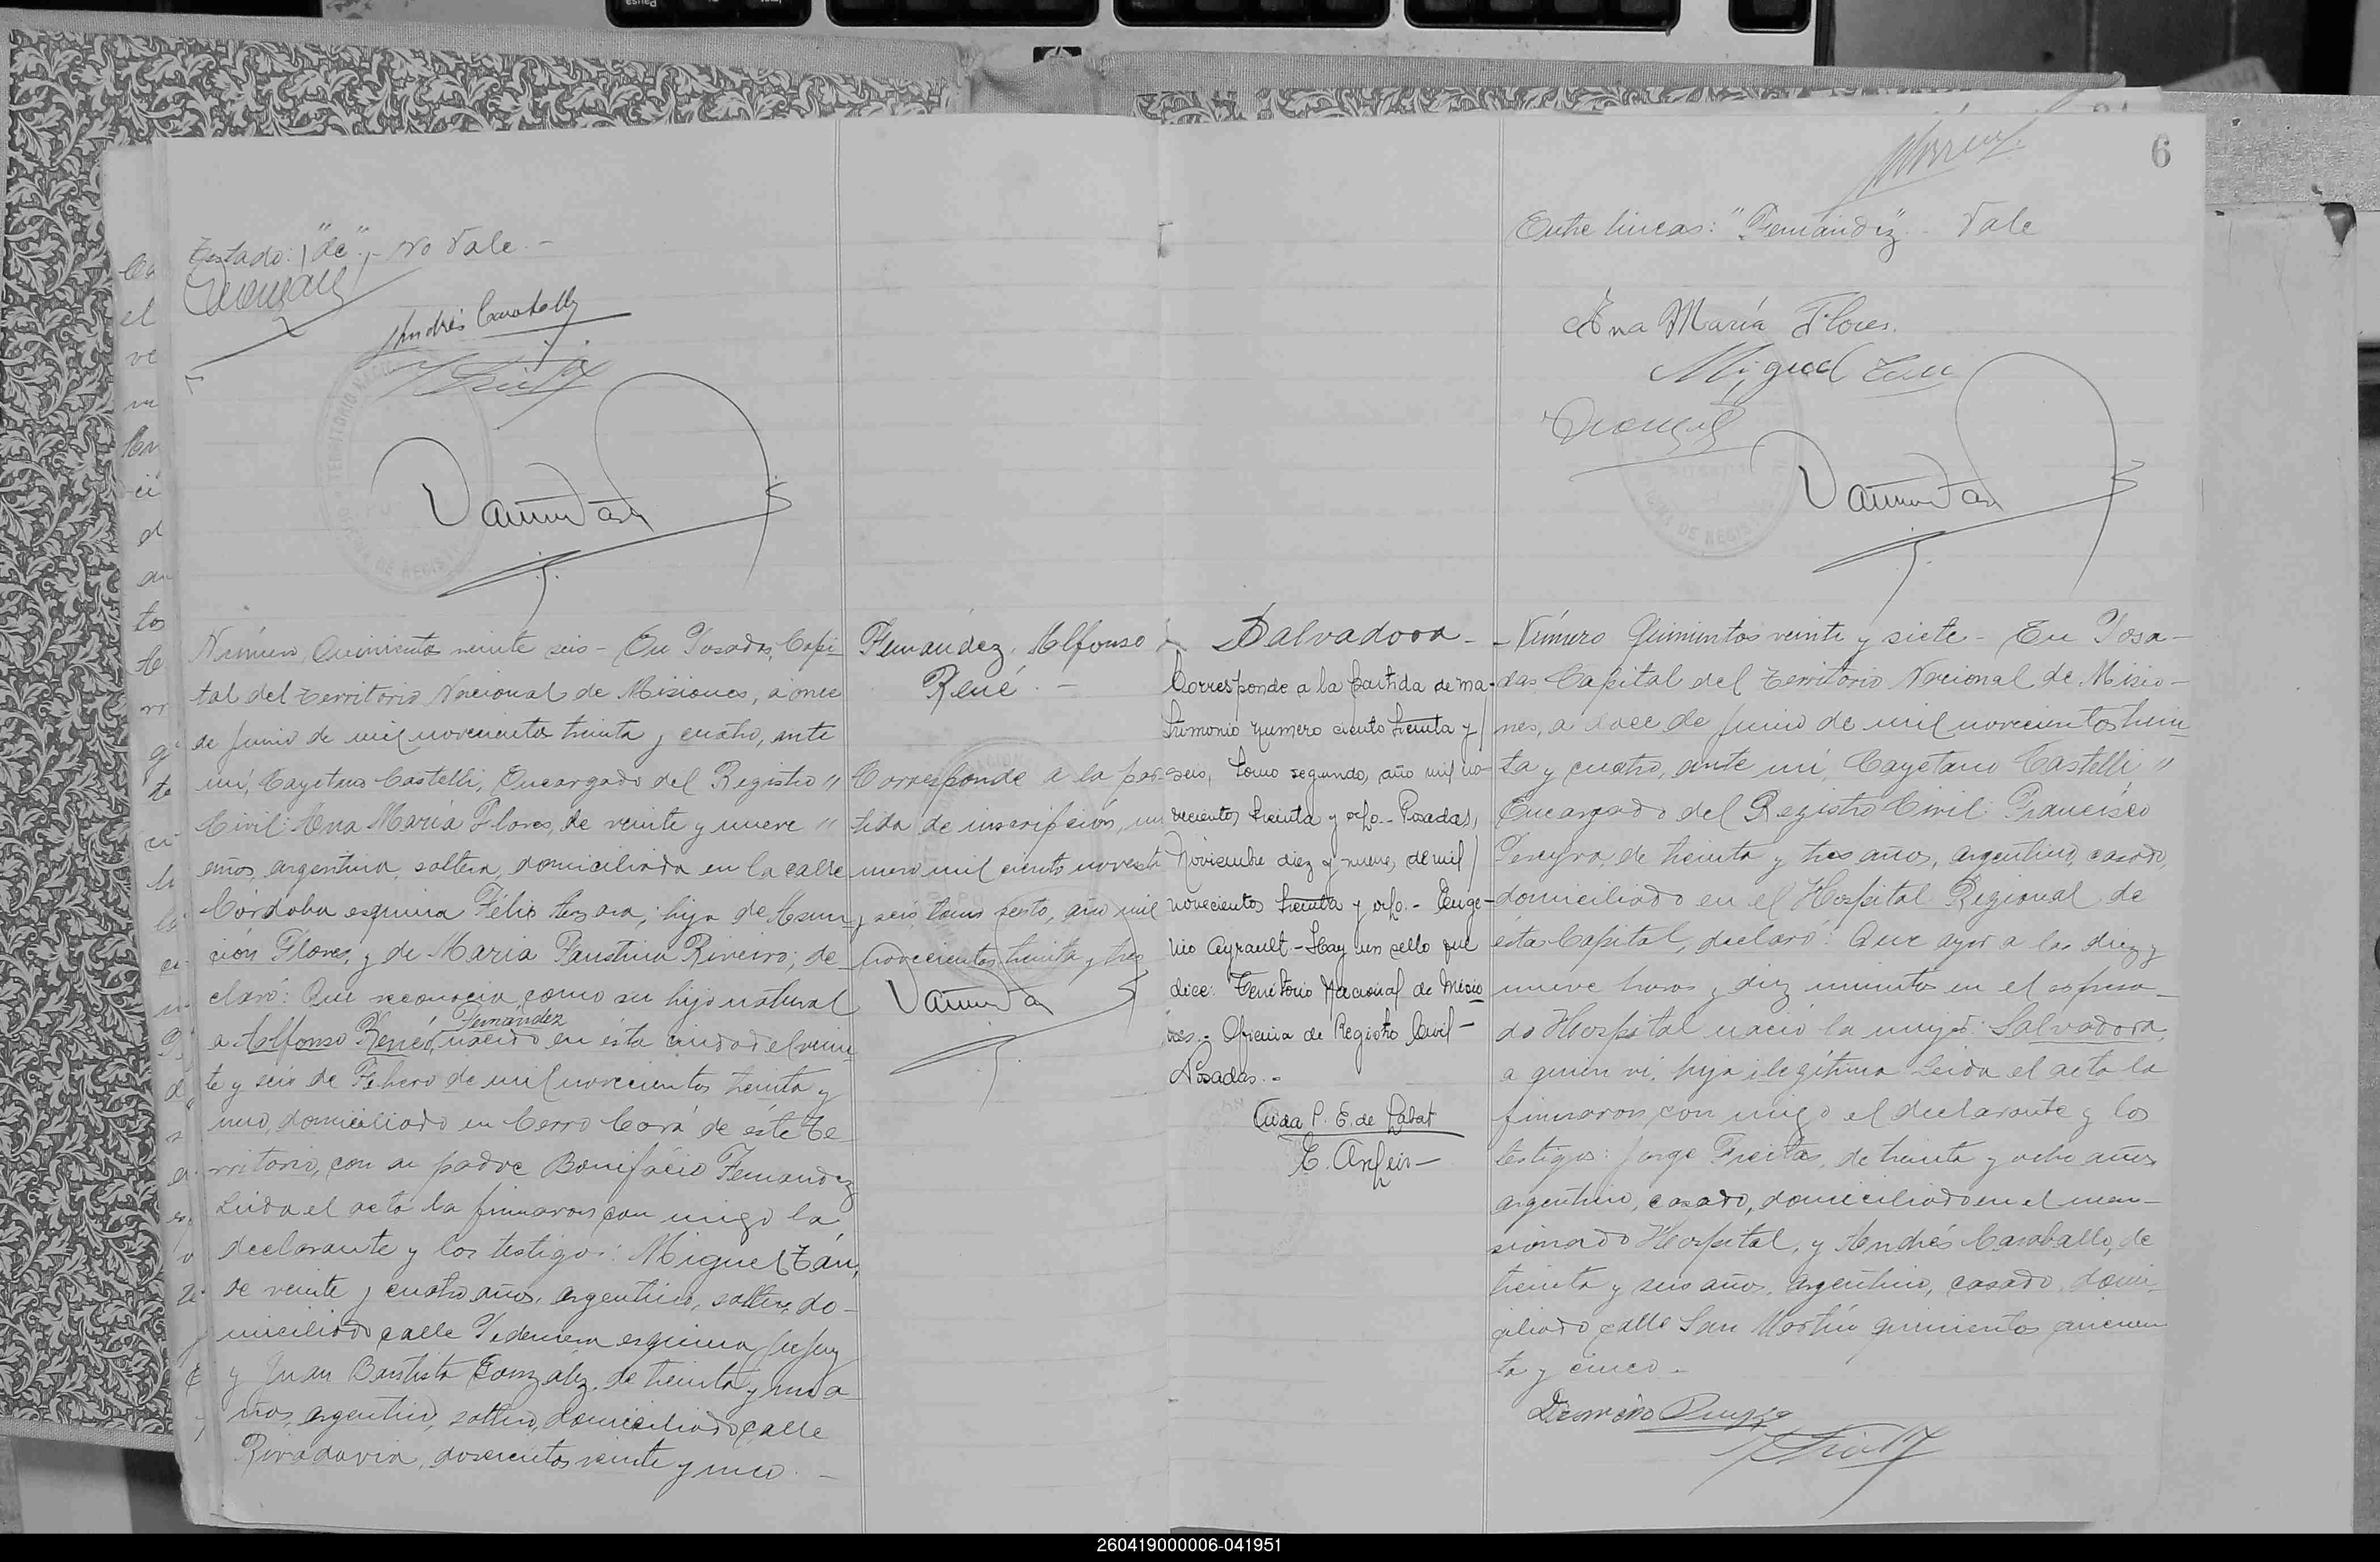 6
Testado: "de" - No Vale. -
Andrés Caraballo
Número Quinientos veinte seis - En Posadas, Capi-
tal del Territorio Nacional de Misiones, a once
de Junio de mil novecientos treinta y cuatro, ante
mí, Cayetano Castelli, Encargado del Registro "
Civil: Ana María Flores, de veinte y nueve "
años, argentina, soltera, domiciliada en la calle
Córdoba esquina Félix de Azara; hija de Asun-
ción Flores, y de María Faustina Riveiro; de-
claró: Que reconocía como su hijo natural
a Alfonso René, Fernandez nacido en ésta ciudad el vein-
te y seis de Febrero de mil novecientos treinta y
uno, domiciliado en Cerro Corá de éste Te-
rritorio, con su padre Bonifacio Fernandez
Leida el acta la firmaron con migo la
declarante y los testigos: Miguel Zán,
de veinte y cuatro años, argentino, soltero, do-
miciliado calle Pedernera esquina Jujuy
y Juan Bautista Gonzalez, de treinta y un a-
ños, argentino, soltero, domiciliado calle
Rivadavia, doscientos veinte y uno. -
Fernandez, Alfonso
René. -
Corresponde a la par-
tida de inscripción, nu
mero mil ciento noventa
y seis, tomo sexto, año mil
novecientos treinta y tres
Salvadora -
Corresponde a la partida de ma-
trimonio numero ciento treinta y
seis, tomo segundo, año mil no-
vecientos treinta y ocho. - Posadas,
Noviembre diez y nueve, de mil
novecientos treinta y ocho. - Euge-
nio Ayrault. - Hay un sello que
dice: Territorio Nacional de Misio
nes. - Oficina de Registro Civil -
Posadas. -
Aida P. E. de Labat
Entre lineas: "Fernández" - Vale
Ana María Flores.
Miguel Zan
- Número Quinientos veinte y siete - En Posa-
das Capital del Territorio Nacional de Misio-
nes, a doce de Junio de mil novecientos trein-
ta y cuatro, ante mí, Cayetano Castelli "
Encargado del Registro Civil: Francisco
Pereyra, de treinta y tres años, argentino, casado,
domiciliado en el Hospital Regional de
ésta Capital, declaró: Que ayer a las diez y
nueve horas y diez minutos en el expresa-
do Hospital nació la mujer: Salvadora,
a quien ví, hija ilegítima Leida el acta la
firmaron con migo el declarante y los
testigos: Jorge Freitas, de treinta y ocho años
argentino, casado, domiciliado en el men-
sionado Hospital, y Andrés Caraballo, de
treinta y seis años, argentino, casado, domi-
ciliado calle San Martín quinientos cincuen
ta y cinco -
260419000006-041951